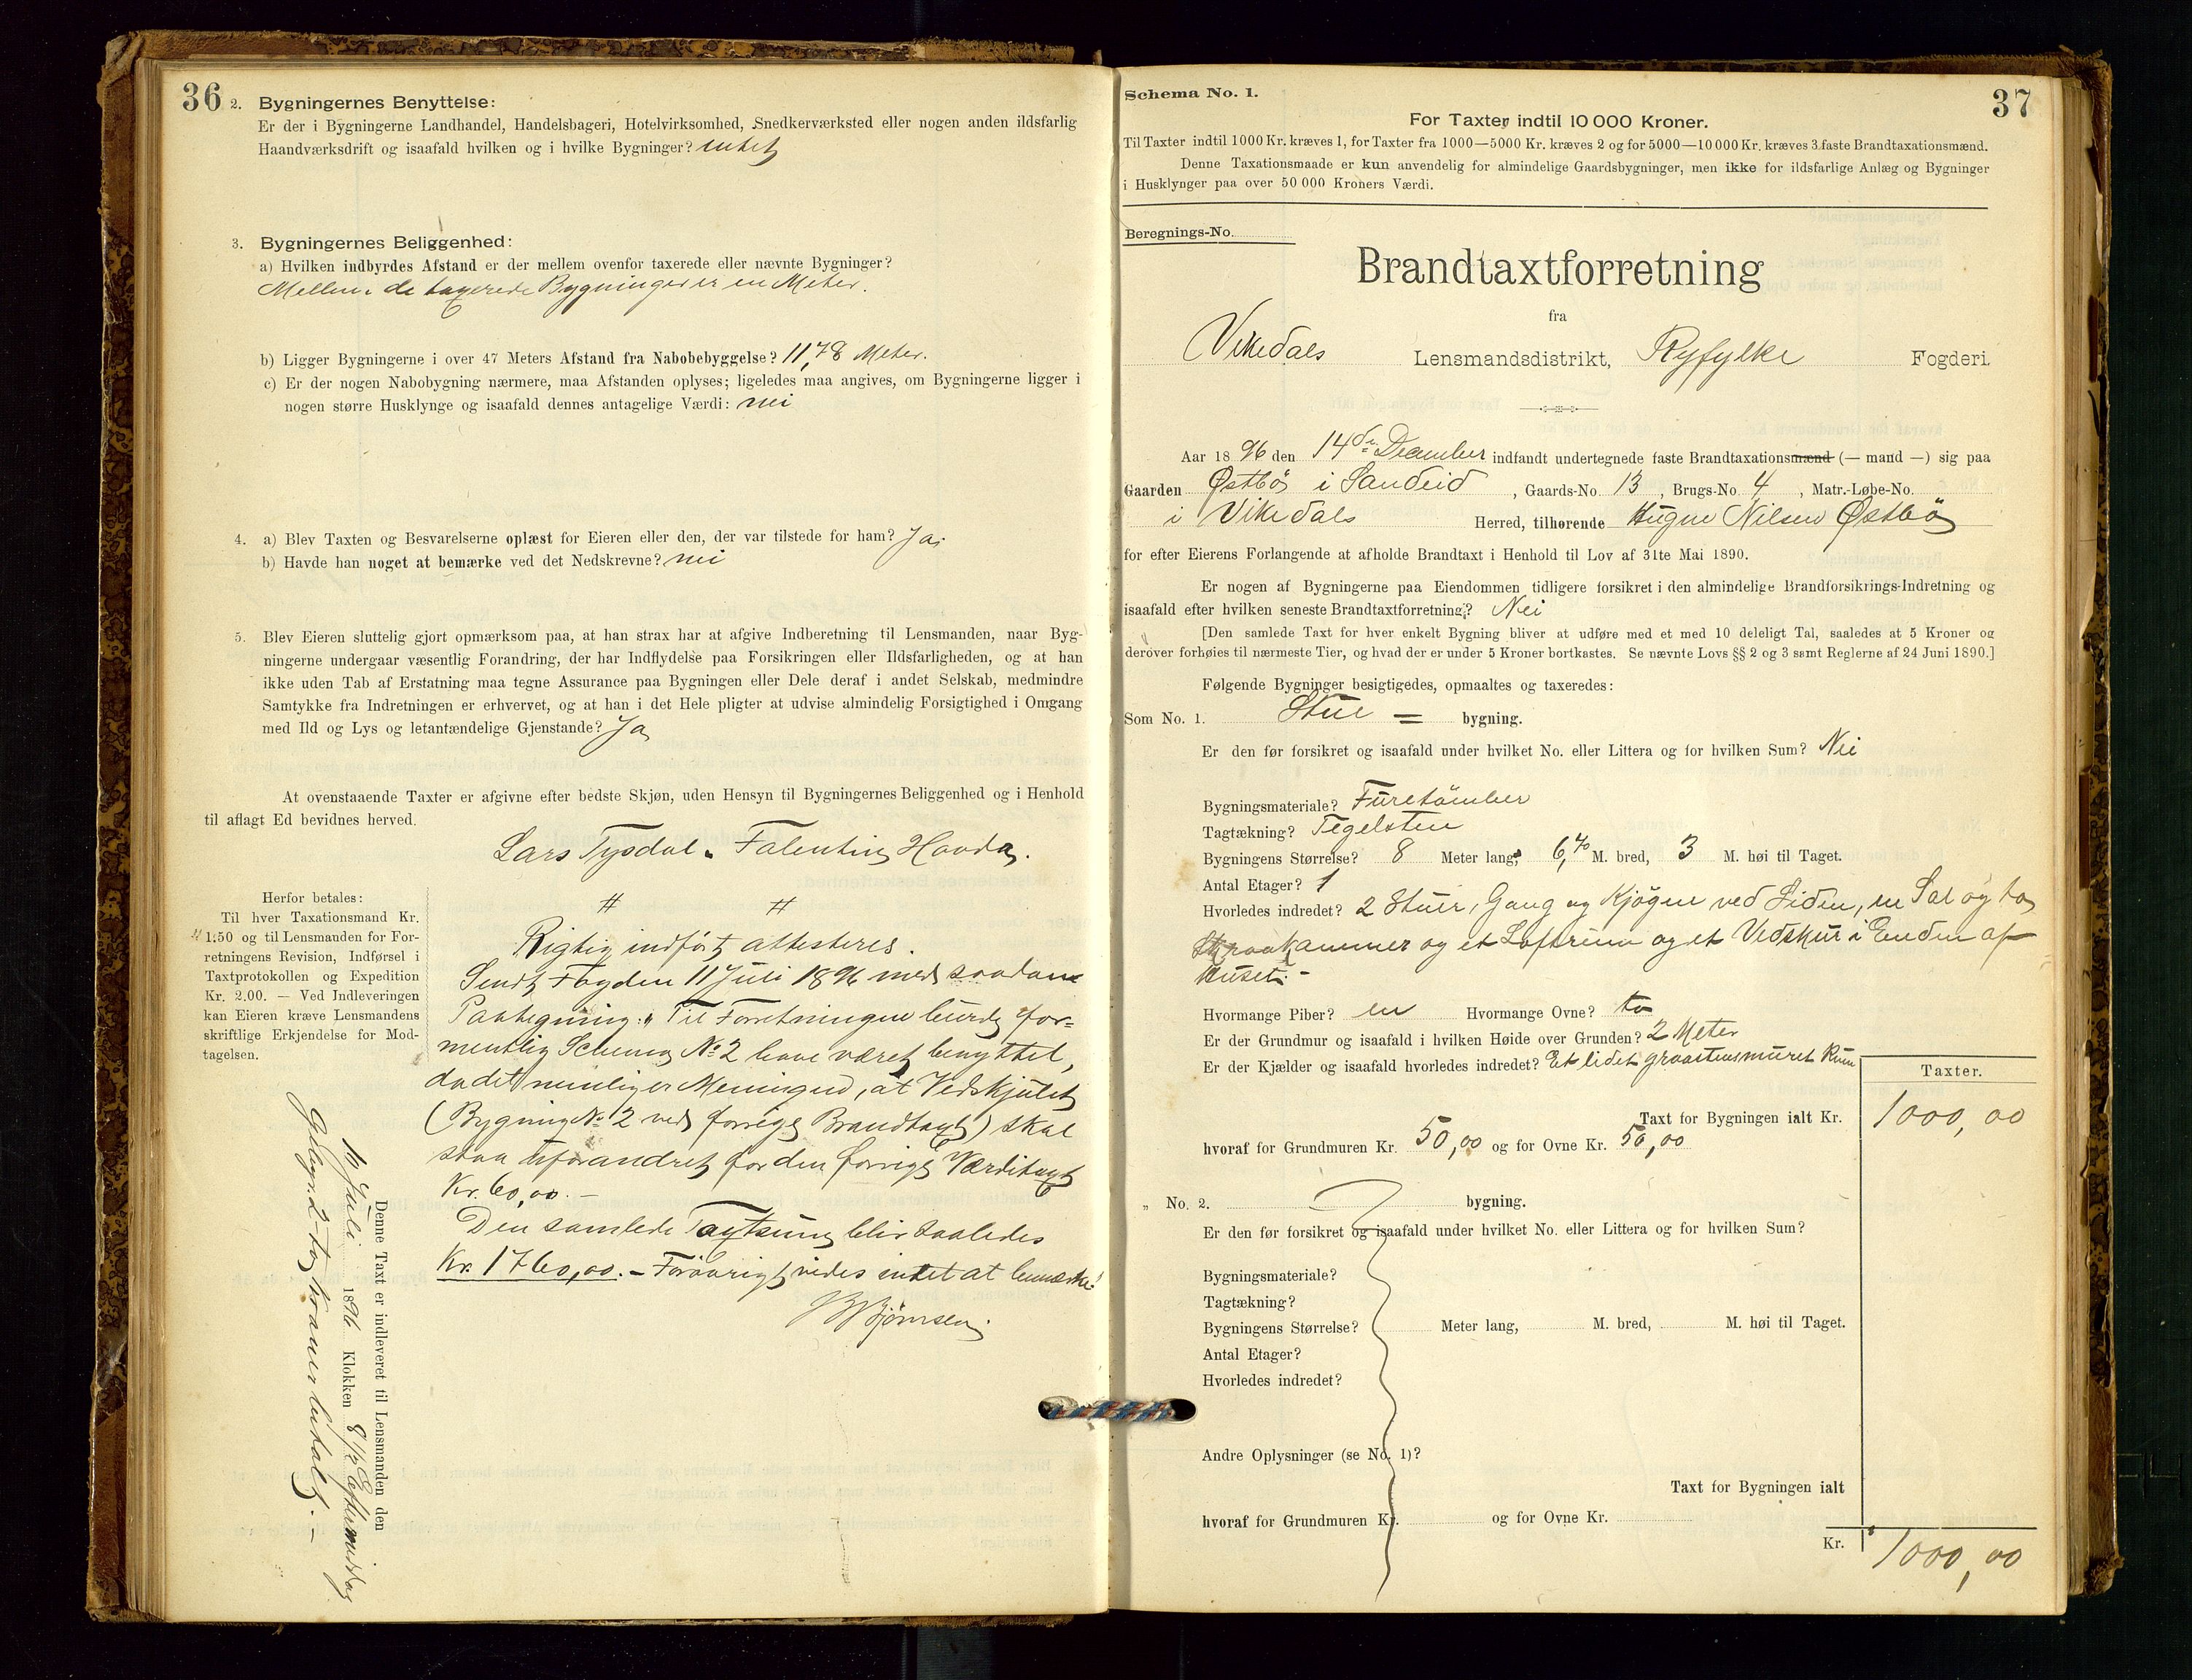 36
2. Bygningernes Benyttelse:
Er der i Bygningerne Landhandel, Handelsbageri, Hotelvirksomhed, Snedkerværksted eller nogen anden ildsfarlig
Haandværksdrift og isaafald hvilken og i hvilke Bygninger? intet
3. Bygningernes Beliggenhed:
a) Hvilken indbyrdes Afstand er der mellem ovenfor taxerede eller nævnte Bygninger?
Mellem de taxerede Bygninger er en Meter.
b) Ligger Bygningerne i over 47 Meters Afstand fra Nabobebyggelse? 11,78 Meter.
c) Er der nogen Nabobygning nærmere, maa Afstanden oplyses; ligeledes maa angives, om Bygningerne ligger i
nogen større Husklynge og isaafald dennes antagelige Værdi: nei
4. a) Blev Taxten og Besvarelserne oplæst for Eieren eller den, der var tilstede for ham? Ja.
b) Havde han noget at bemærke ved det Nedskrevne? nei
5. Blev Eieren sluttelig gjort opmærksom paa, at han strax har at afgive Indberetning til Lensmanden, naar Byg-
ningerne undergaar væsentlig Forandring, der har Indflydelse paa Forsikringen eller Ildsfarligheden, og at han
ikke uden Tab af Erstatning maa tegne Assurance paa Bygningen eller Dele deraf i andet Selskab, medmindre
Samtykke fra Indretningen er erhvervet, og at han i det Hele pligter at udvise almindelig Forsigtighed i Omgang
med Ild og Lys og letantændelige Gjenstande? Ja
At ovenstaaende Taxter er afgivne efter bedste Skjøn, uden Hensyn til Bygningernes Beliggenhed og i Henhold
til aflagt Ed bevidnes herved.
Lars Tysdal. Falentin Hovda.
# #
Herfor betales:
Til hver Taxationsmand Kr.
1.50 og til Lensmanden for For-
retningens Revision, Indførsel i
Taxtprotokollen og Expedition
Kr. 2.00. — Ved Indleveringen
kan Eieren kræve Lensmandens
skriftlige Erkjendelse for Mod-
tagelsen.
Rigtig indført attesteres.
Sendt Fogden 11 Juli 1896 med saadan
Paategning: " Til Forretningen burde for-
mentlig Schema No 2 have været benyttet,
da det nemlig er Meningen, at Vedskjulet
(Bygning No 2 ved forrige Brandtaxt) skal
staa uforandret for den forrige Værditaxt
Kr. 60,00. —
Den samlede Taxtsum blir saaledes
Kr. 1760,00. — Forøvrigt vides intet at bemærke."
Bjørnsen.
Denne Taxt er indleveret til Lensmanden den
16 Juli 1896 Klokken 8 1/2 Eftermiddag
2 - to Kroner betalt. —
37
Schema No. 1.
For Taxter indtil 10 000 Kroner.
Til Taxter indtil 1000 Kr. kræves 1, for Taxter fra 1000—5000 Kr. kræves 2 og for 5000—10 000 Kr. kræves 3 faste Brandtaxationsmænd.
Denne Taxationsmaade er kun anvendelig for almindelige Gaardsbygninger, men ikke for ildsfarlige Anlæg og Bygninger
i Husklynger paa over 50 000 Kroners Værdi.
Beregnings-No.
Brandtaxtforretning
fra
Vikedals Lensmandsdistrikt, Ryfylke Fogderi.
Aar 1896 den 14de December indfandt undertegnede faste Brandtaxationsmænd (— mand —) sig paa
Gaarden Østbö i Sandeid, Gaards-No. 13, Brugs-No. 4, Matr.-Løbe-No.
i Vikedals Herred, tilhørende Hugne Nilsen Østbö
for efter Eierens Forlangende at afholde Brandtaxt i Henhold til Lov af 31te Mai 1890.
Er nogen af Bygningerne paa Eiendommen tidligere forsikret i den almindelige Brandforsikrings-Indretning og
isaafald efter hvilken seneste Brandtaxtforretning? Nei
[Den samlede Taxt for hver enkelt Bygning bliver at udføre med et med 10 deleligt Tal, saaledes at 5 Kroner og
derover forhøies til nærmeste Tier, og hvad der er under 5 Kroner bortkastes. Se nævnte Lovs §§ 2 og 3 samt Reglerne af 24 Juni 1890.]
Følgende Bygninger besigtigedes, opmaaltes og taxeredes:
Som No. 1. Stue = bygning.
Er den før forsikret og isaafald under hvilket No. eller Littera og for hvilken Sum? Nei
Bygningsmateriale? Furetömber
Tagtækning? Tegelsten
Bygningens Størrelse? 8 Meter lang, 6,70 M. bred, 3 M. høi til Taget.
Antal Etager? 1
Hvorledes indredet? 2 Stuer, Gang og Kjøgen ved Siden, en Sal og to
Skraakammer og et Loftrum og et Vedskur i Enden af
Huset. -
Hvormange Piber? en Hvormange Ovne? to
Er der Grundmur og isaafald i hvilken Høide over Grunden? 2 Meter
Er der Kjælder og isaafald hvorledes indredet? Et lidet graastensmuret Rum
Taxter.
Taxt for Bygningen ialt Kr. 1000,00
hvoraf for Grundmuren Kr. 50,00 og for Ovne Kr. 50,00
" No. 2. bygning.
Er den før forsikret og isaafald under hvilket No. eller Littera og for hvilken Sum?
Bygningsmateriale?
Tagtækning?
Bygningens Størrelse? Meter lang, M. bred, M. høi til Taget.
Antal Etager?
Hvorledes indredet?
Andre Oplysninger (se No. 1)?
Taxt for Bygningen ialt
hvoraf for Grundmuren Kr. og for Ovne Kr.
Kr. 1000,00